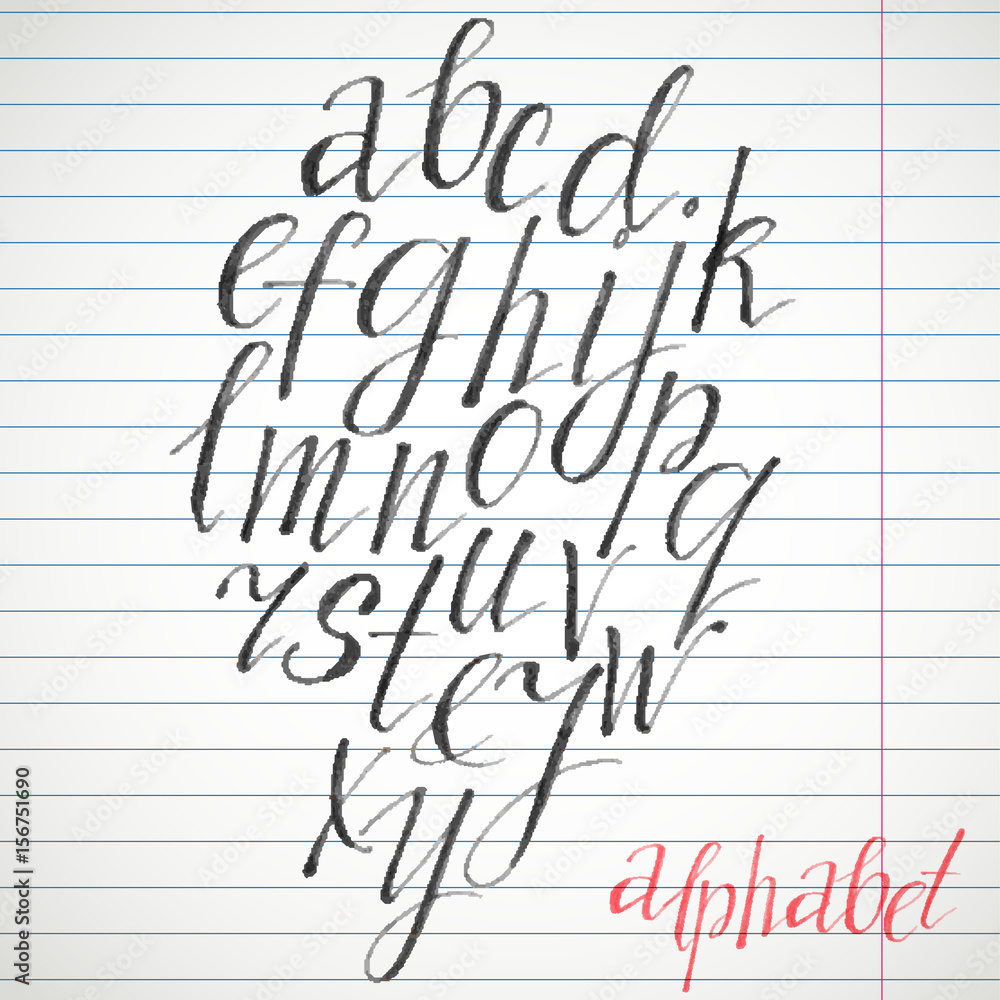 abcd
efghijk
lmnopq
rstuvw
ey
xy
alphabet
Adobe Stock | #156751690